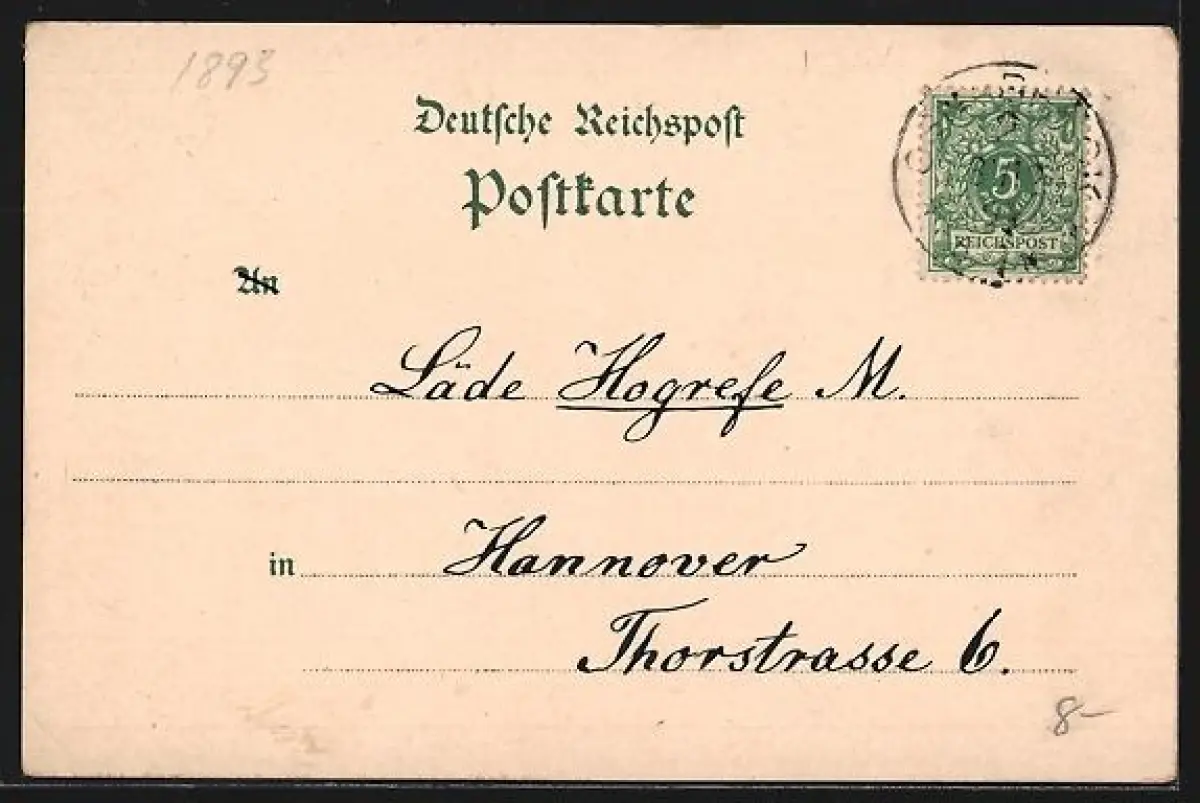 1893
Deutsche Reichspost
Postkarte
5
REICHSPOST
An
Läde Hogrefe M.
in Hannover
Thorstrasse 6.
8-